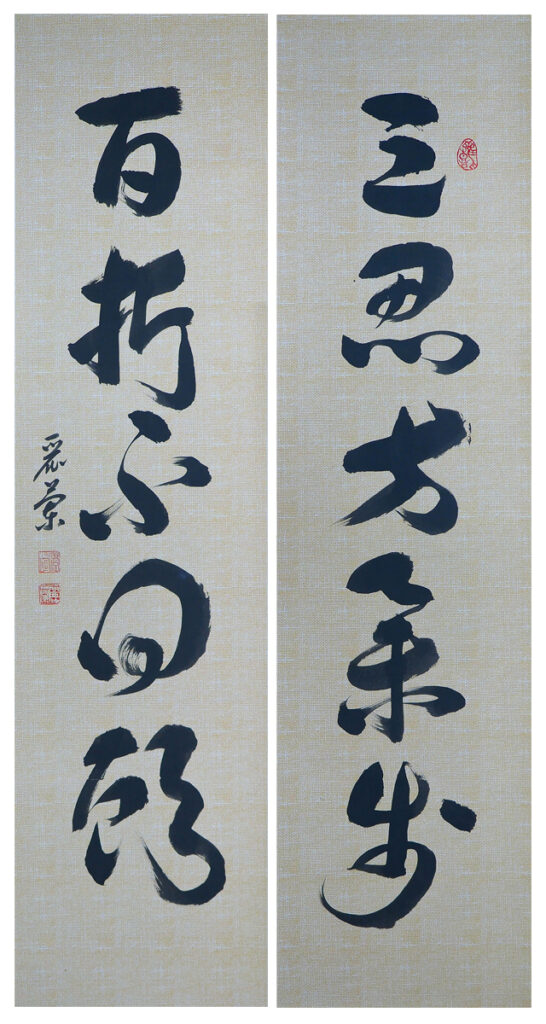 三思方舉步
百折不回頭
麗蘭